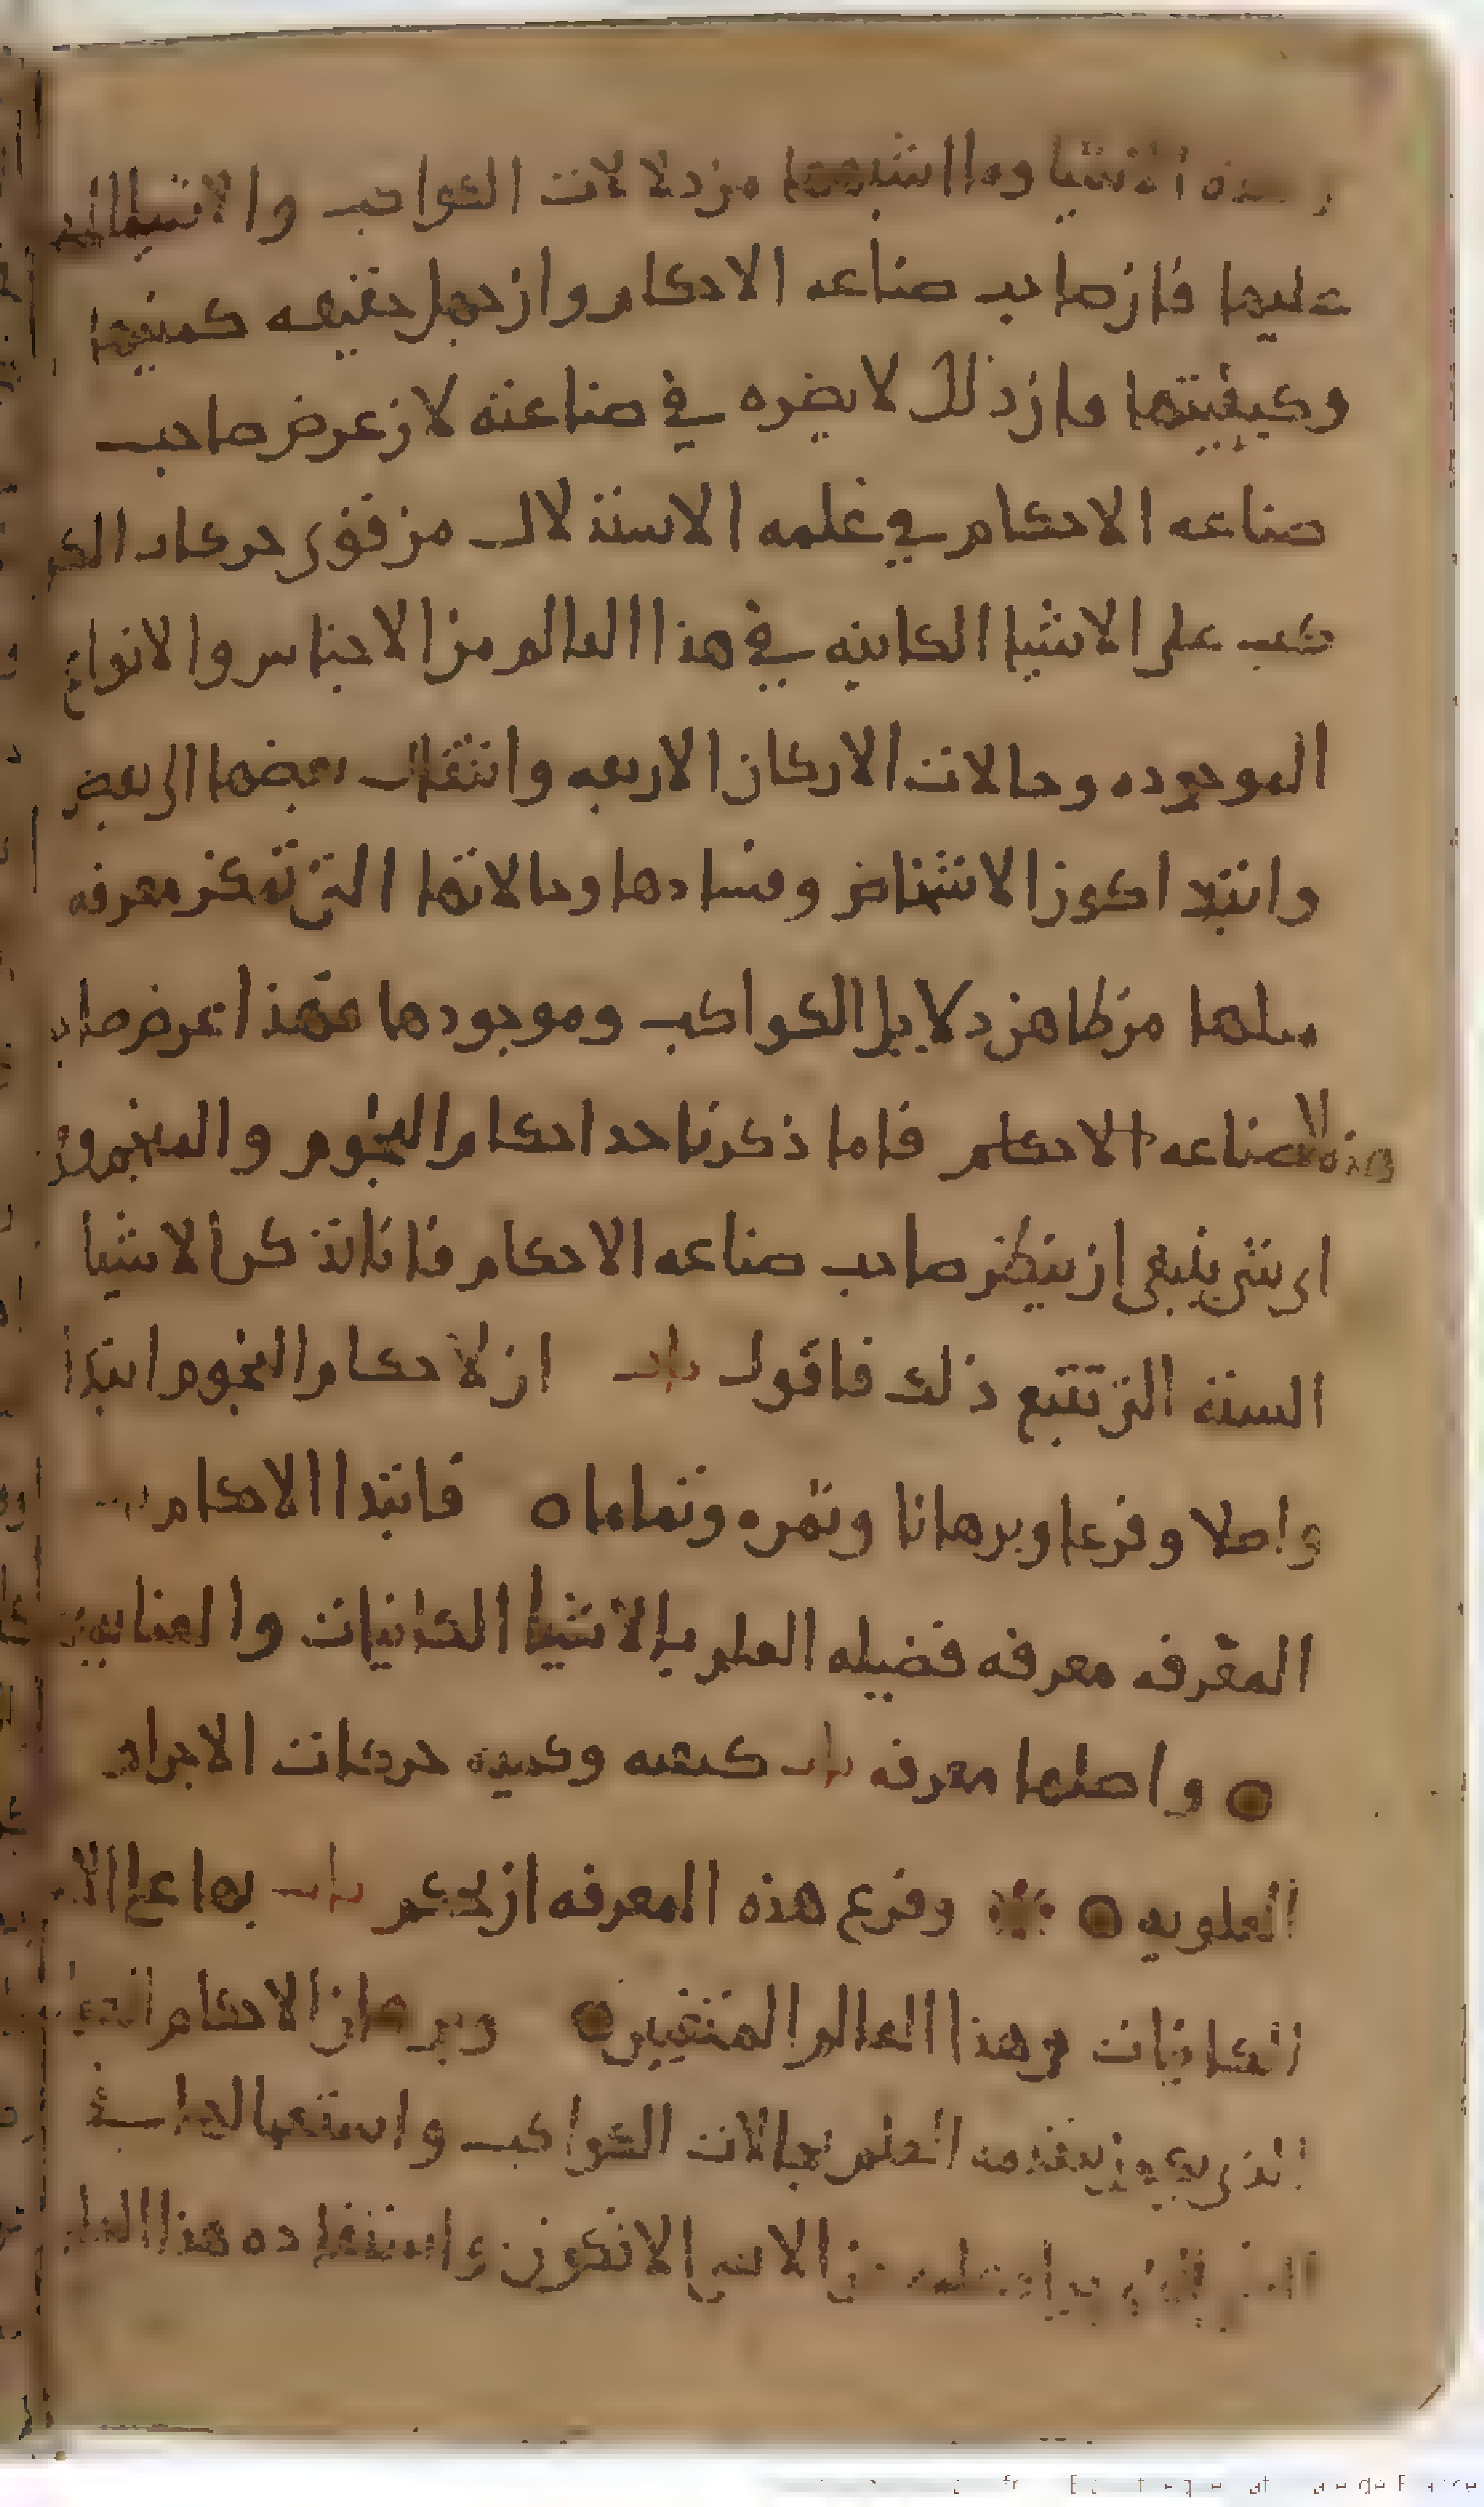 هذه الاشيا وما اشبهها من دلالات الكواكب والاشيا
عليها فان صاحب صناعه الاحكام وان جهل حقيقه كميتها
وكيفيتها فان ذلك لا يضره في صناعته لان غرض صاحب
صناعه الاحكام في علمه الاستدلال من قوى حركات الكوا
كب على الاشيا الكاينه في هذا العالم من الاجناس والانواع
الموجوده وحالات الاركان الاربعه وانتقال بعضها الى بعض
وابتدا كون الاشخاص وفسادها وحالاتها التي تمكن معرفه
مثلها من ظاهر دلايل الكواكب وموجودها فهذا غرض صاحب
صناعه الاحكام فاما ذكرنا حد احكام النجوم والمنجم
اى شى ينبغى ان ينظر صاحب صناعه الاحكام فانا نذكر الاشيا
السته التى تتبع ذلك فاقول باب ان لاحكام النجوم ابتدا
واصلا وفرعا وبرهانا وثمره وتماما ○ فابتدا الاحكام
المعرفه معرفه فضيله العلم بالاشيا الكانيات
○ واصلها معرفه باب كيفيه وكميه حركات الاجرام
العلويه ○ وفرع هذه المعرفه ان يحكم باب بها على الا
الكانيات فى هذا العالم المتغير ○ وبرهان الاحكام
الذى يكون يتقدمه العلم بحالات الكواكب واستعمال
الاشيا لا تكون واستفاده هذا العلم